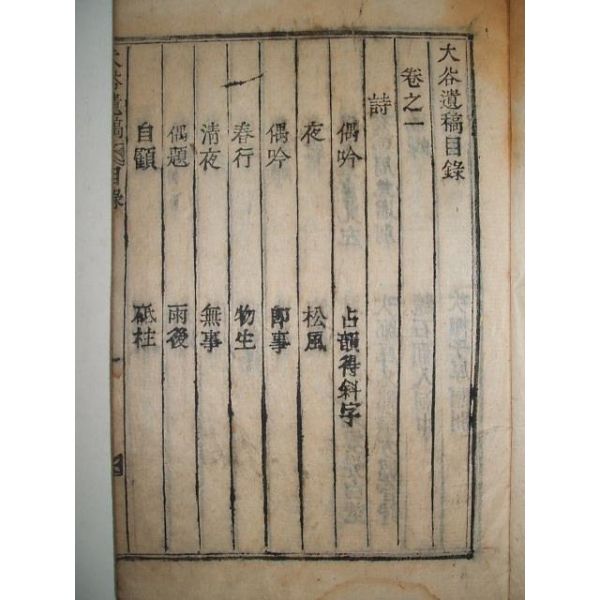 大谷遺稿目錄
卷之一
詩
偶吟 占韻得斜字
夜 松風
偶吟 即事
春行 物生
清夜 無事
偶題 雨後
自顧 砥柱
大谷遺稿 目錄 一